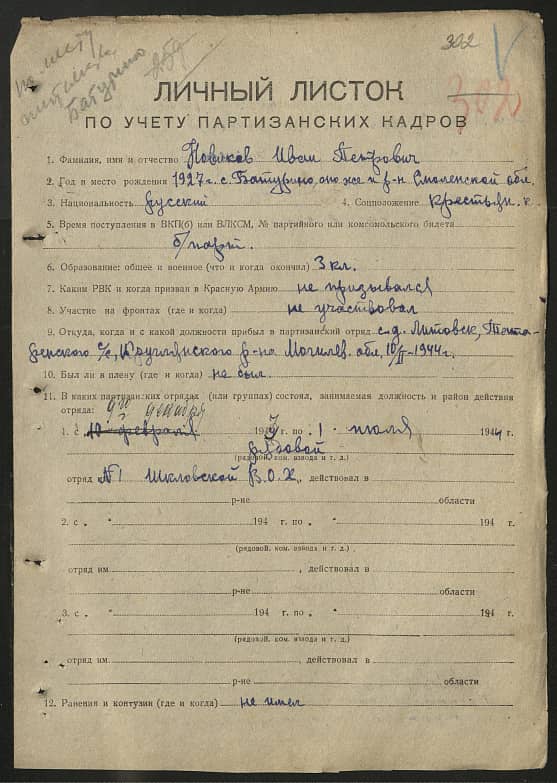 302
Батурино
ЛИЧНЫЙ ЛИСТОК
ПО УЧЕТУ ПАРТИЗАНСКИХ КАДРОВ
1. Фамилия, имя и отчество Новиков Иван Петрович
2. Год и место рождения 1927 г. с. Батурино, оно же и р-н Смоленской обл.
3. Национальность русский 4. Соцположение крестьян. к.
5. Время поступления в ВКП(б) или ВЛКСМ, № партийного или комсомольского билета
б/парт.
6. Образование: общее и военное (что и когда окончил) 3 кл.
7. Каким РВК и когда призван в Красную Армию не призывался
8. Участие на фронтах (где и когда) не участвовал
9. Откуда, когда и с какой должности прибыл в партизанский отряд с д. Литовск, Тете-
ринского с/с, Круглянского р-на Могилев. обл. 10/II-1944 г.
10. Был ли в плену (где и когда) не был.
11. В каких партизанских отрядах (или группах) состоял, занимаемая должность и район действия
отряда: декабря
1. с 10 февраля 194 г. по 1 июля 1944 г.
рядовой
(рядовой, ком. взвода и т. д.)
отряд №1 Шкловской В.О.Х., действовал в
р-не области
2. с „ “ 194 г. по „ “ 194 г.
(рядовой, ком. взвода и т. д.)
отряд им. , действовал в
р-не области
3. с „ “ 194 г. по „ “ 194 г.
(рядовой, ком. взвода и т. д.)
отряд им. действовал в
р-не области
12. Ранения и контузии (где и когда) не имел